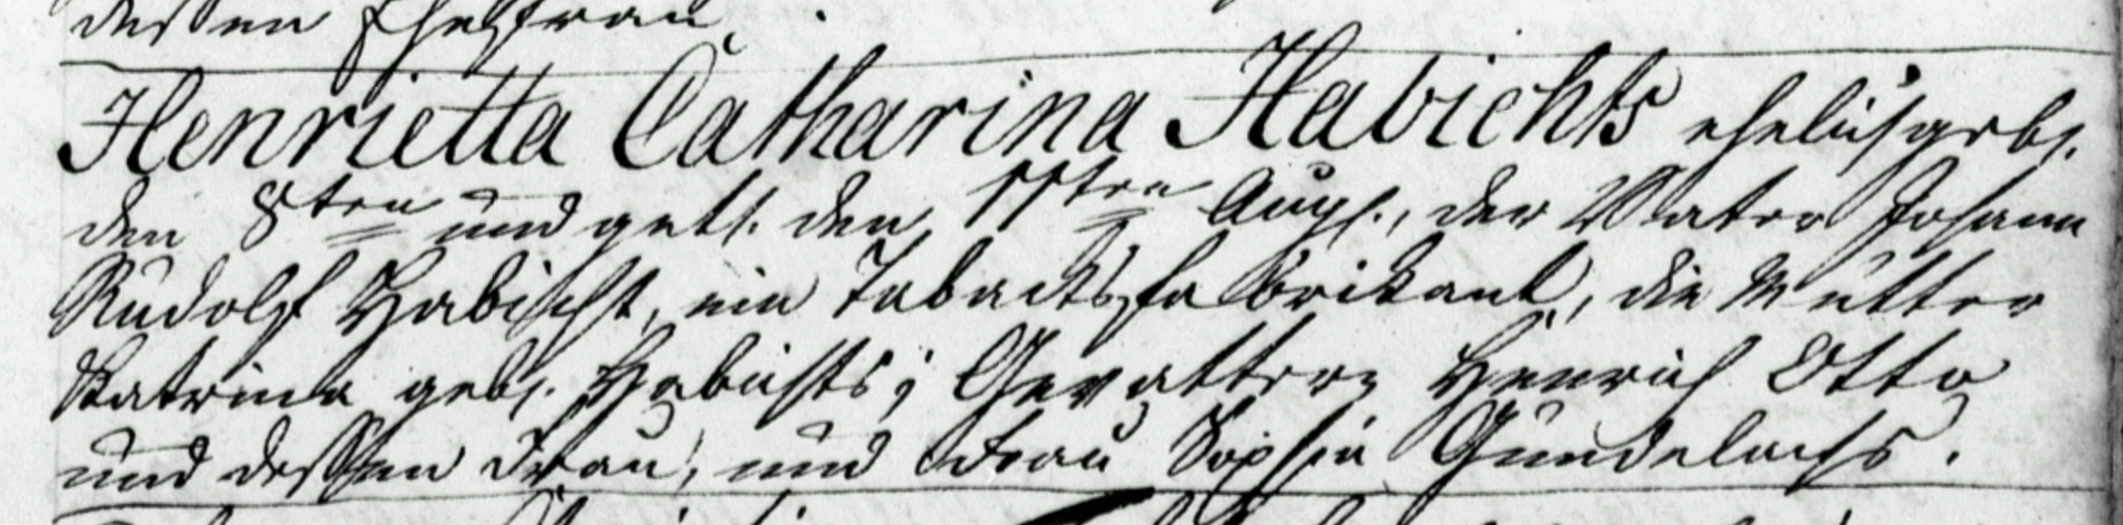 dessen Ehefrau.
Henrietta Catharina Habichts ehelich geb.
den 8ten und get. den 11ten Aug., der Vater Johann
Rudolf Habicht, ein Tabacksfabrikant, die Mutter
Katrina geb. Habichts; Gevattern Henrich Otto
und dessen Frau, und Frau Sophia Gundelachs.